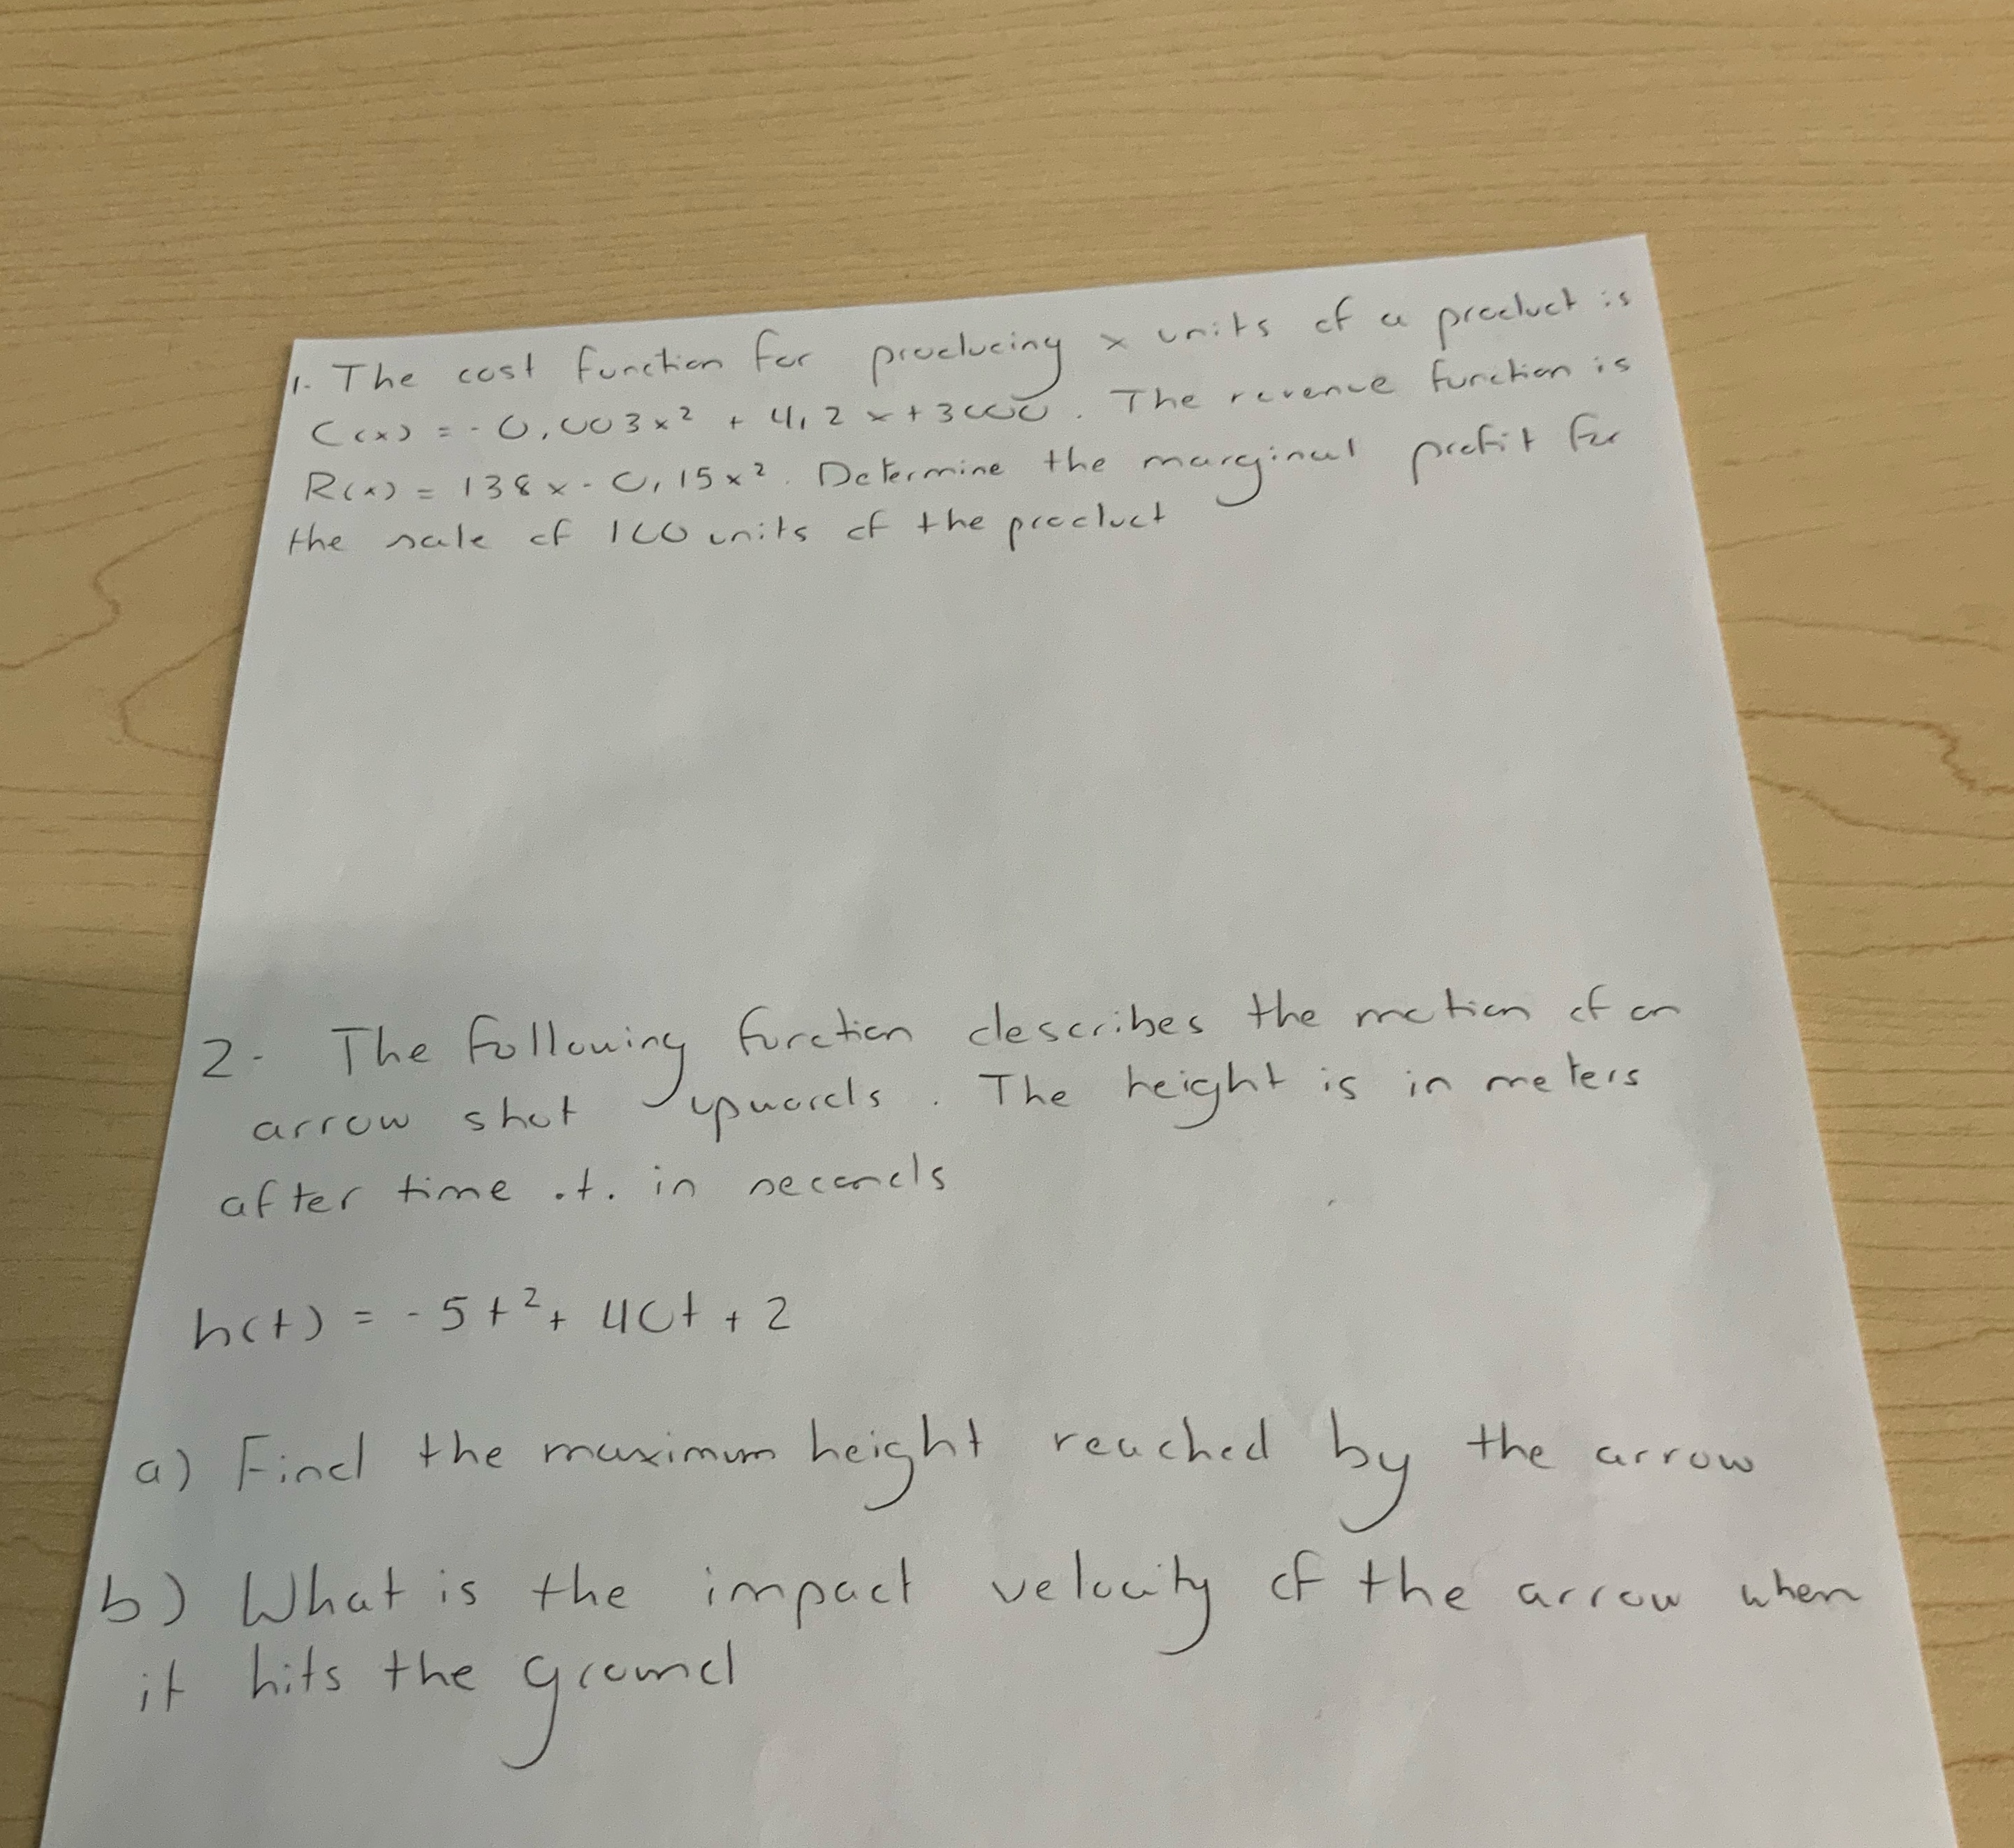 1. The cost function for producing x units of a product is
C(x) = -0,003x² + 4,2x + 3000. The revenue function is
R(x) = 138x - 0,15x². Determine the marginal profit for
the sale of 100 units of the product
2- The following function describes the motion of an
arrow shot upwards. The height is in meters
after time .t. in seconds
h(t) = -5t² + 40t + 2
a) Find the maximum height reached by the arrow
b) What is the impact velocity of the arrow when
it hits the ground